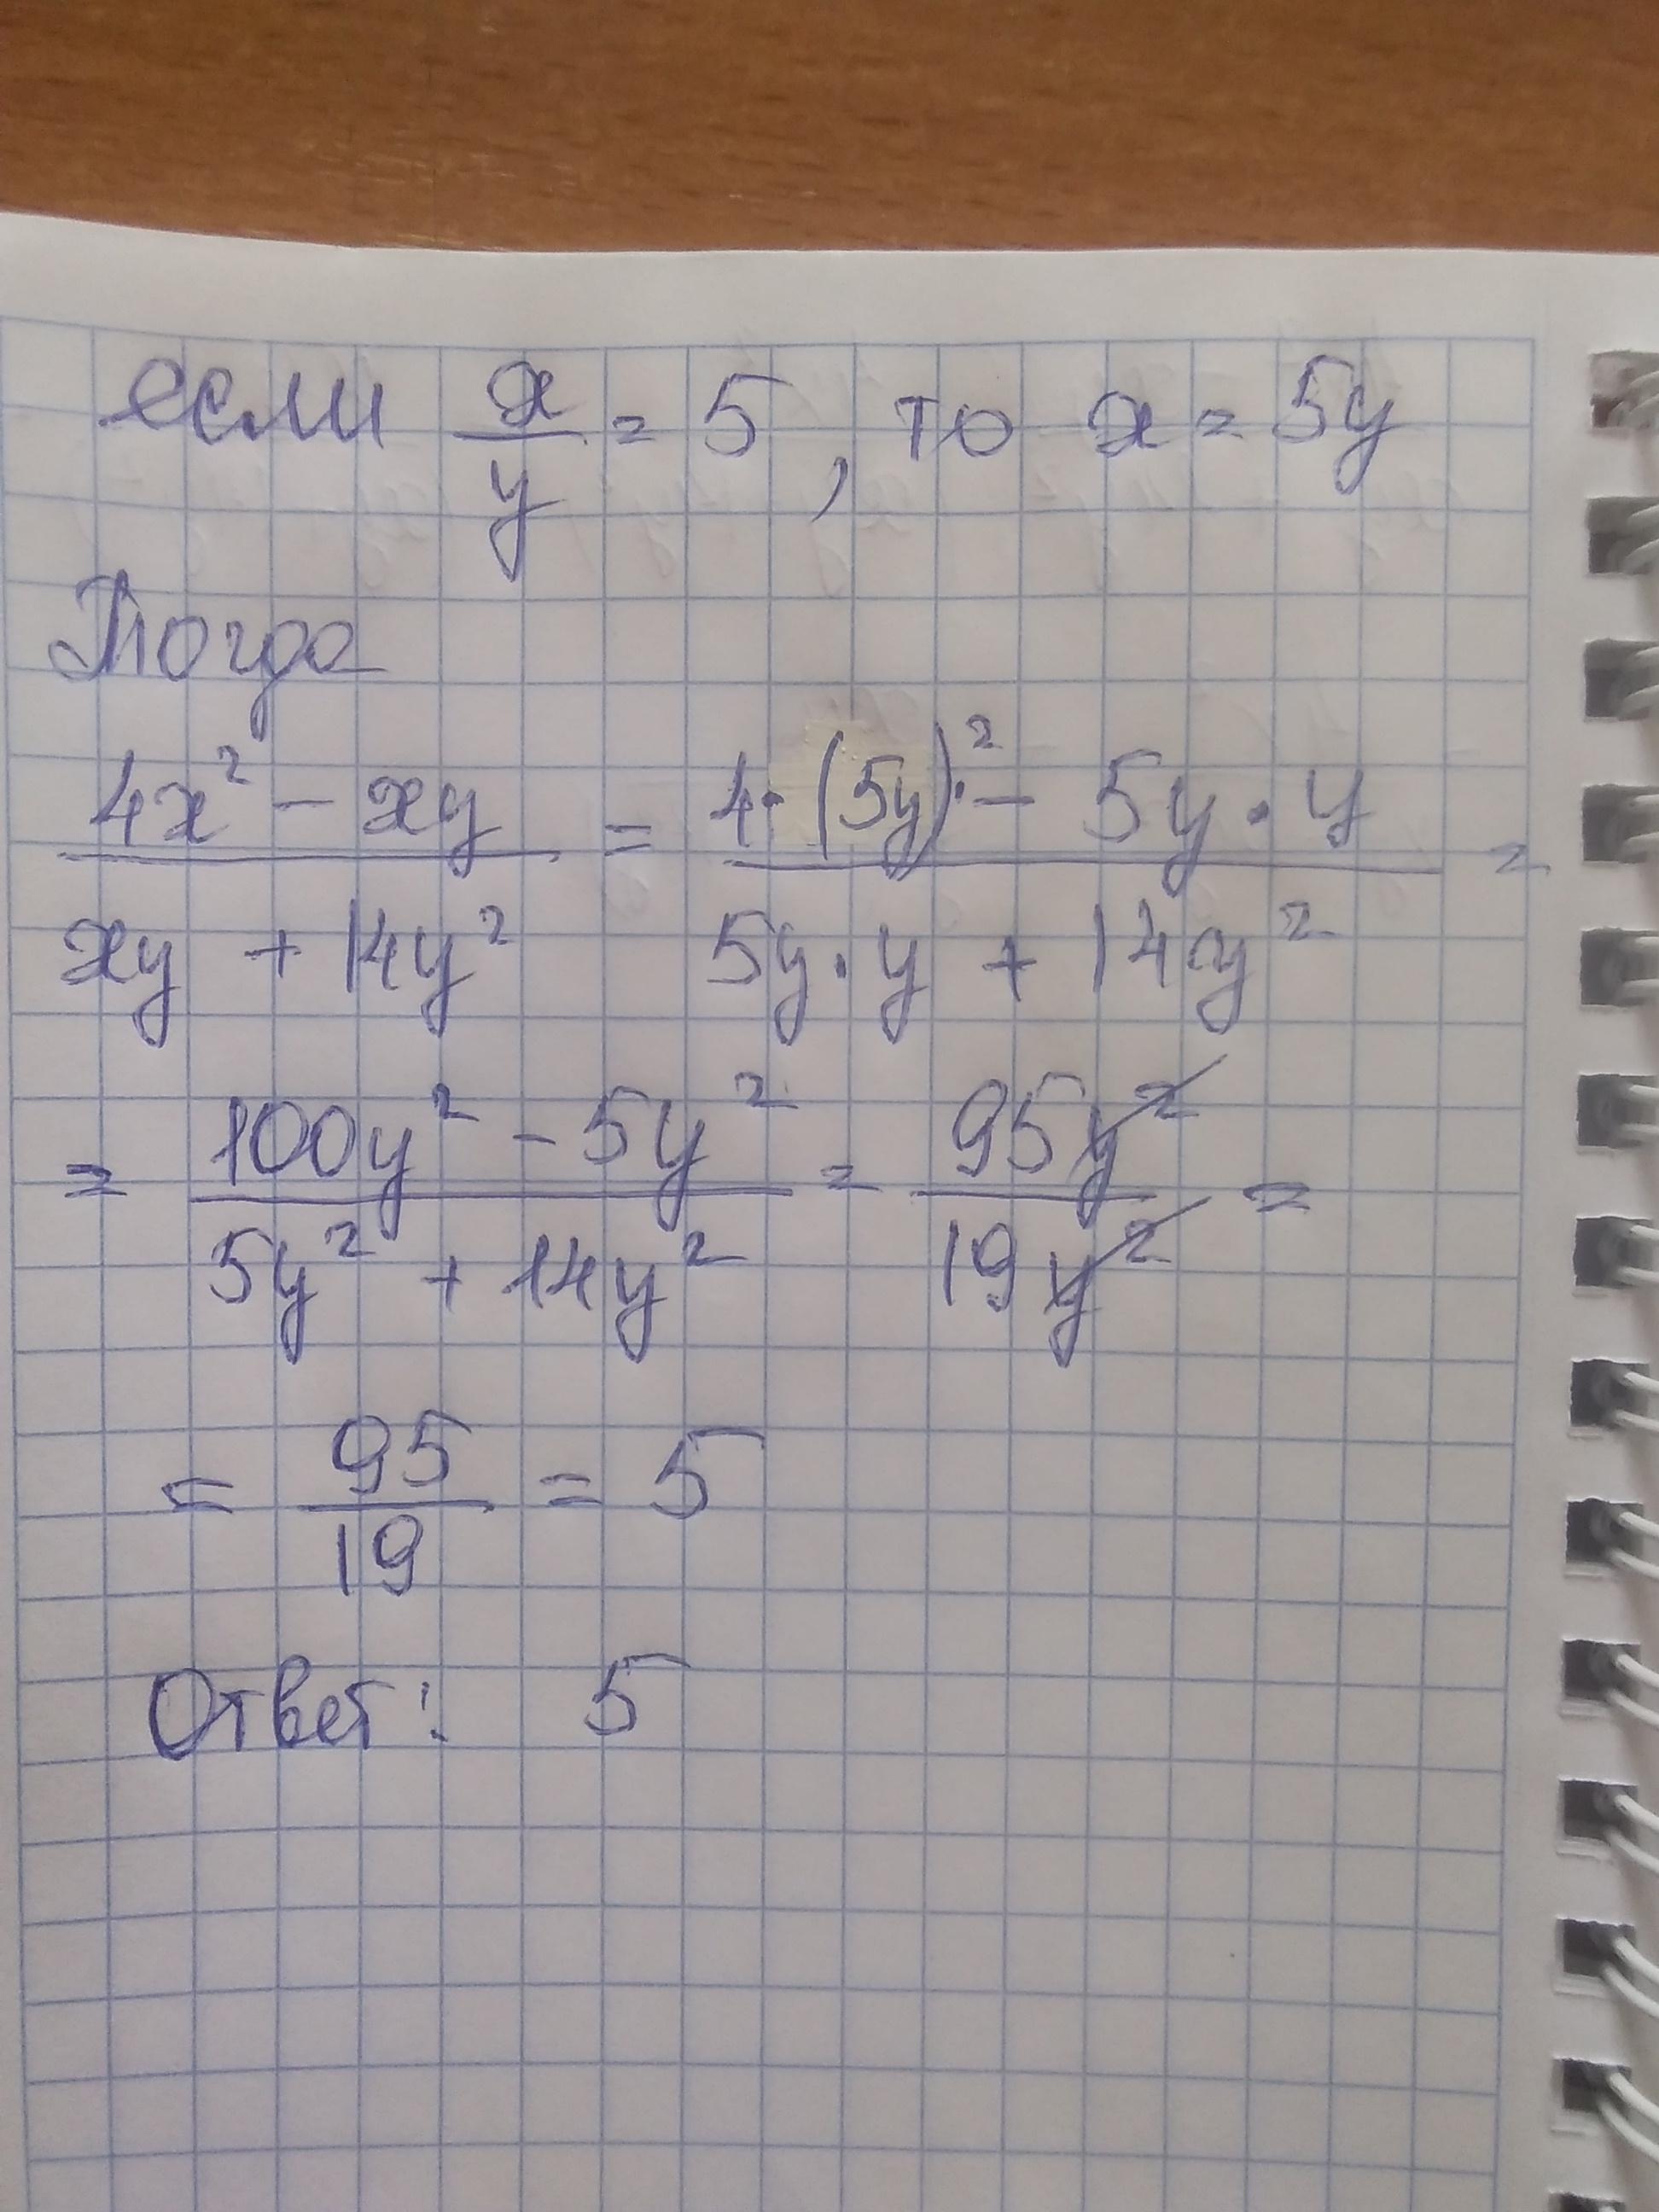 если x/y = 5, то x = 5y
Тогда
(4x² - xy)/(xy + 14y²) = (4·(5y)² - 5y·y)/(5y·y + 14y²) =
= (100y² - 5y²)/(5y² + 14y²) = 95y²/19y² =
= 95/19 = 5
Ответ: 5